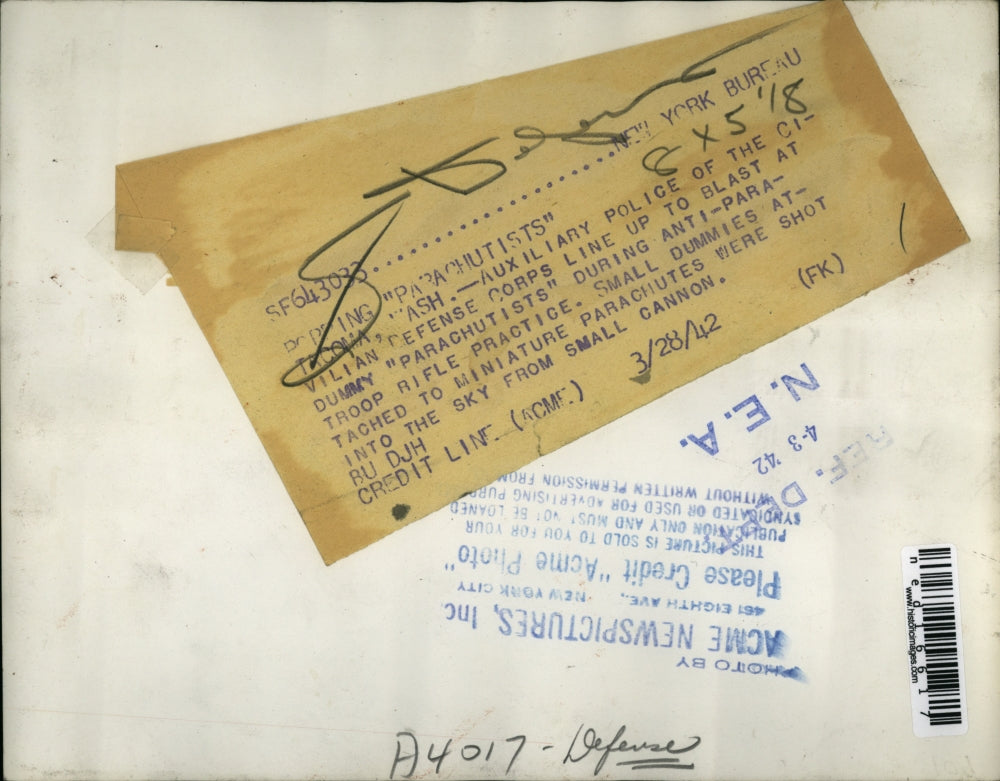 SF643033....................NEW YORK BUREAU
8 X 5 '18
POPPING "PARACHUTISTS"
TACOMA, WASH.—AUXILIARY POLICE OF THE CI-
VILIAN DEFENSE CORPS LINE UP TO BLAST AT
DUMMY "PARACHUTISTS" DURING ANTI-PARA-
TROOP RIFLE PRACTICE. SMALL DUMMIES AT-
TACHED TO MINIATURE PARACHUTES WERE SHOT
INTO THE SKY FROM SMALL CANNON.
BU DJH (FK)
CREDIT LINE (ACME) 3/28/42
N.E.A.
4-3 '42
REF. DEPT
PHOTO BY
ACME NEWSPICTURES, Inc
461 EIGHTH AVE., NEW YORK CITY
Please Credit "Acme Photo"
THIS PICTURE IS SOLD TO YOU FOR YOUR
PUBLICATION ONLY AND MUST NOT BE LOANED
SYNDICATED OR USED FOR ADVERTISING PURPO
WITHOUT WRITTEN PERMISSION FROM
ned16617
www.historicimages.com
A4017 - Defense